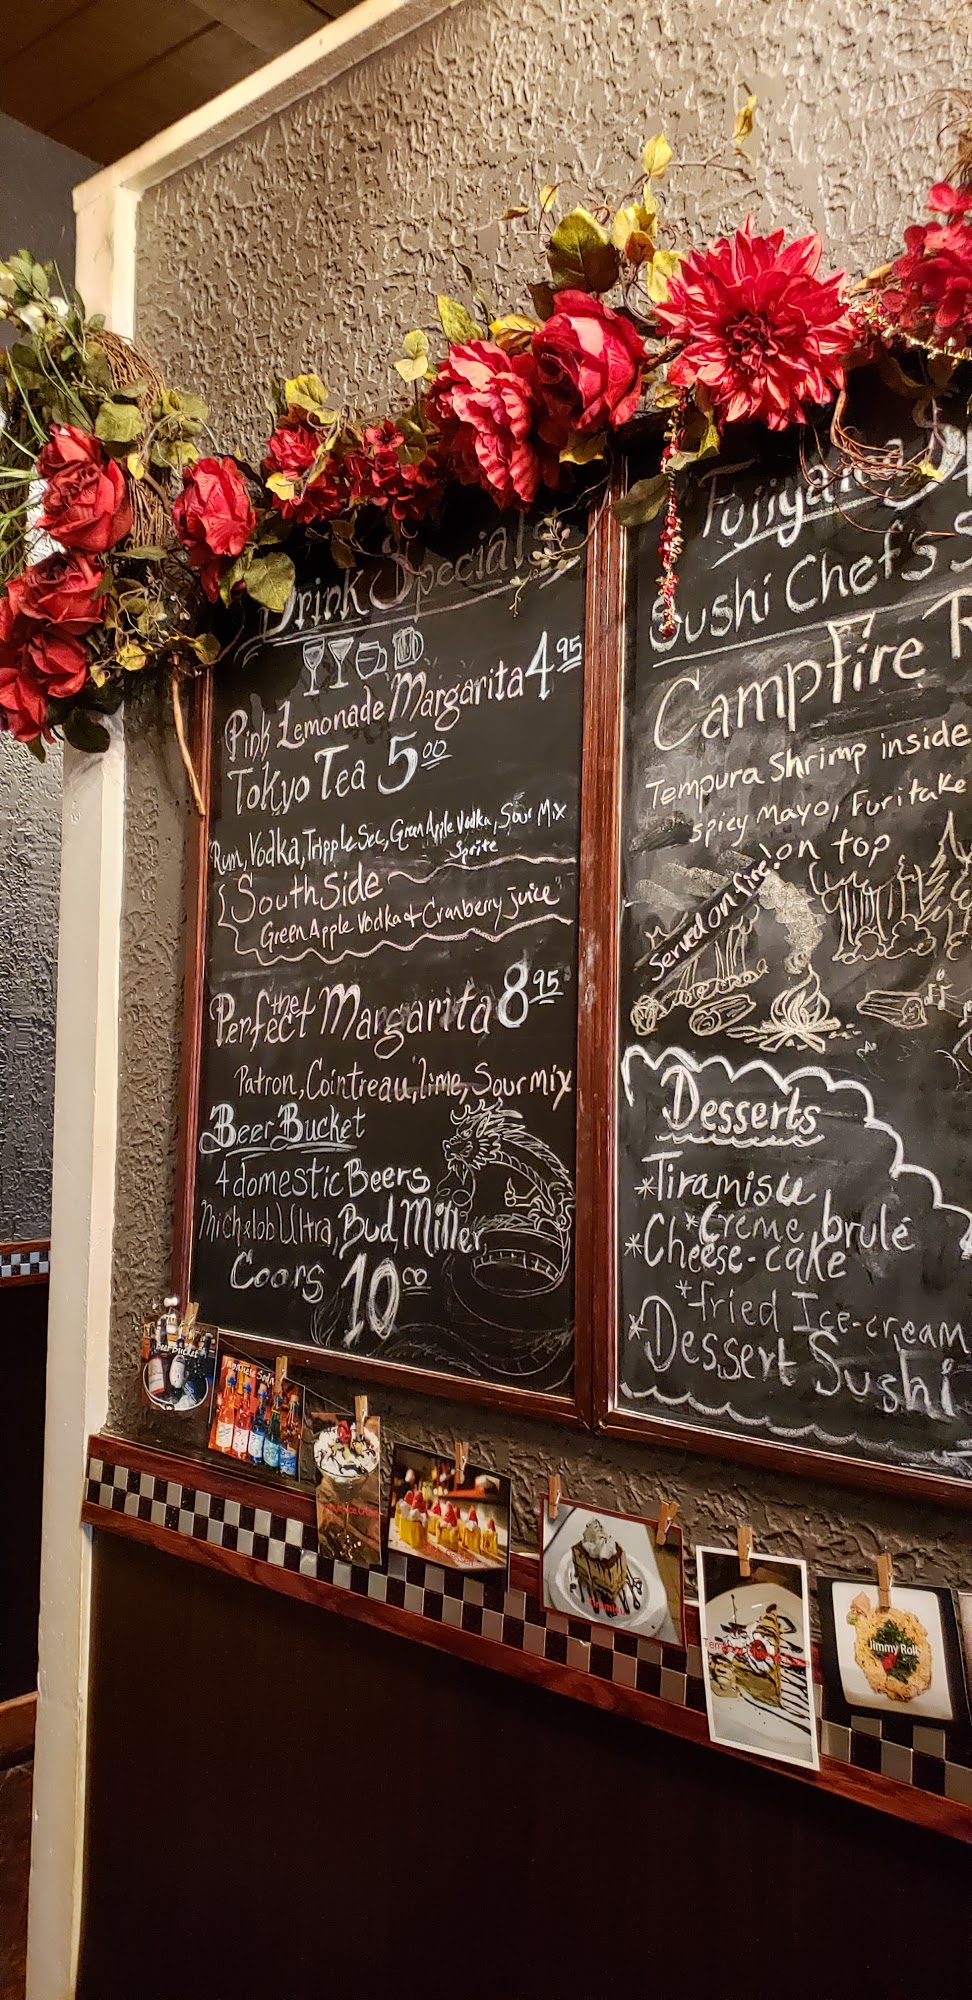 Drink Specials
Pink Lemonade Margarita 4.95
Tokyo Tea 5.00
Rum, Vodka, Tripple Sec, Green Apple Vodka, Sour Mix
Sprite
South Side
Green Apple Vodka & Cranberry juice
the
Perfect Margarita 8.95
Patron, Cointreau, lime, Sour mix
Beer Bucket
4 domestic Beers
Michelob Ultra, Bud, Miller,
Coors 10.00
Sushi Chef's
Campfire
Tempura Shrimp inside
spicy Mayo, Furitake
on top
Served on fire!
Desserts
*Tiramisu
*Creme brulé
*Cheese-cake
*fried Ice-cream
*Dessert Sushi
Beer Bucket
Japanese Soda
Tiramisu
Jimmy Roll